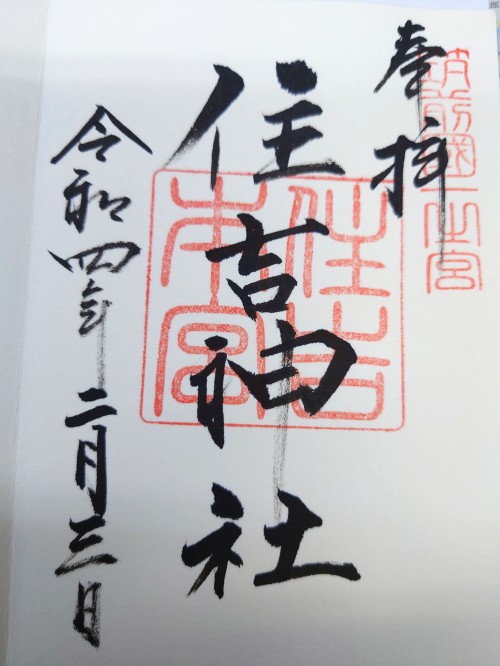 筑前國一之宮
奉拝
住吉神社
住吉本宮
令和四年二月三日